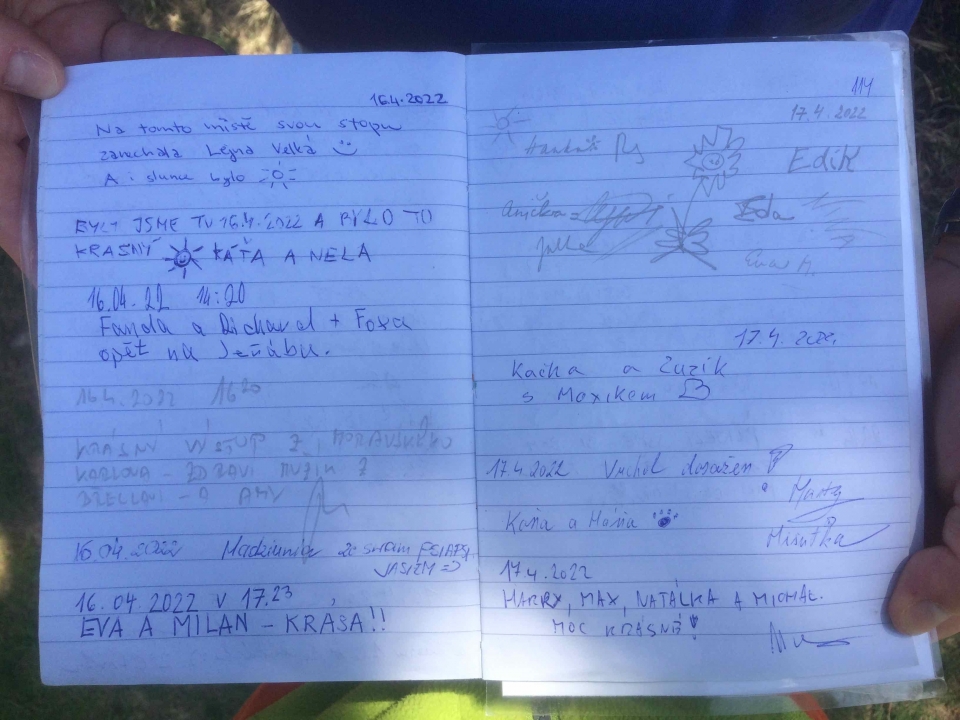 16.4.2022
Na tomto místě svou stopu
zanechala Lejna Velká
A i slunce bylo
BYLI JSME TU 16.4.2022 A BYLO TO
KRÁSNÝ KÁŤA A NELA
16.04.22 14:20
Fanda a Richard + Foxa
opět na Jeřábu.
16.4.2022 16 20
KRÁSNÝ VÝSTUP Z MORAVSKÉHO
KARLOVA - ZDRAVÍ
16.04.2022 Madziunia ze swoim
16.04.2022 V 17.23
EVA A MILAN - KRÁSA!!
114
17.4.2022
Edik
Anička
Julka
Eda
Eva
17.4.2022
Kačka a Zuzik
s Maxíkem
17.4.2022 Vrchol dosažen
Káňa a Háňa
Mišutka
17.4.2022
HARRY, MAX, NATÁLKA A MICHAL.
MOC KRÁSNÉ!